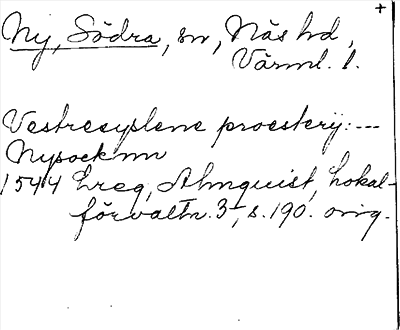 +
Ny, Södra, sn, Näs hd,
Värml. l.
Vestresyslene proesterij: ---
Nysocknn
1544 Ereg, Almquist, Lokal-
förvaltn. 3, s. 190. orig.